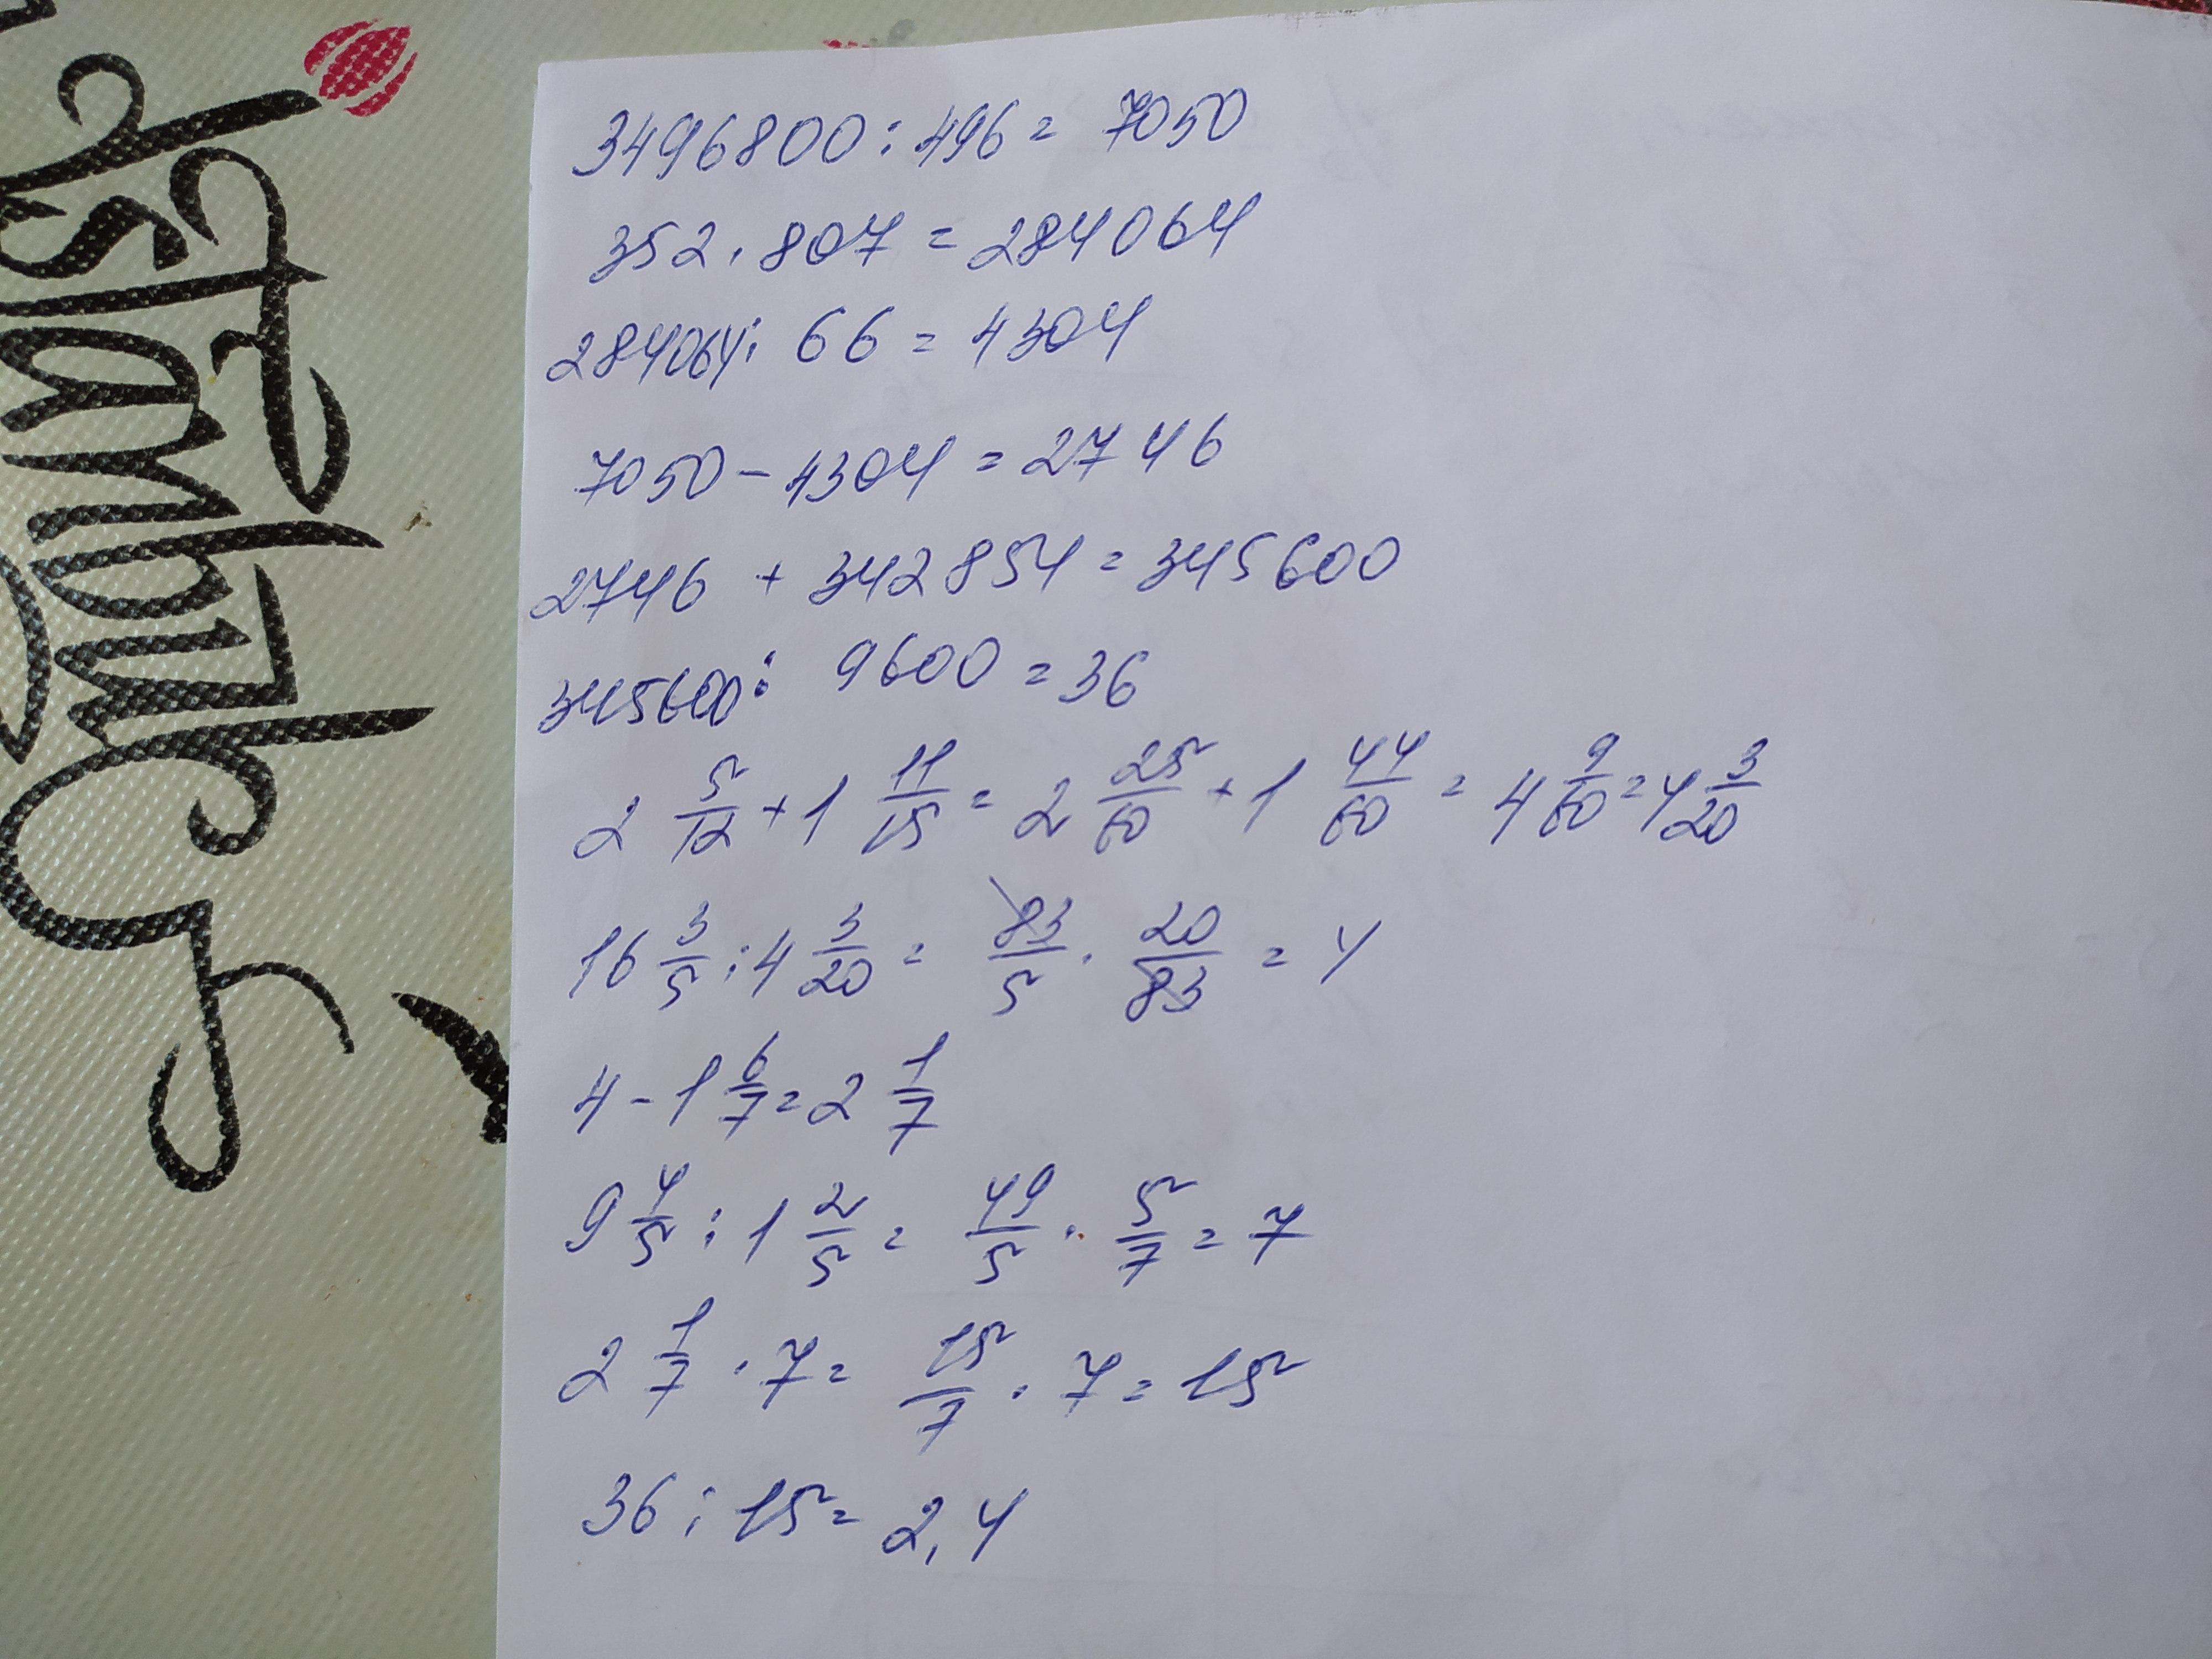 3496800 : 496 = 7050
352 · 807 = 284064
284064 : 66 = 4304
7050 - 4304 = 2746
2746 + 342854 = 345600
345600 : 9600 = 36
2 5/12 + 1 11/15 = 2 25/60 + 1 44/60 = 4 9/60 = 4 3/20
16 3/5 : 4 3/20 = 83/5 · 20/83 = 4
4 - 1 6/7 = 2 1/7
9 4/5 : 1 2/5 = 49/5 · 5/7 = 7
2 1/7 · 7 = 15/7 · 7 = 15
36 : 15 = 2,4